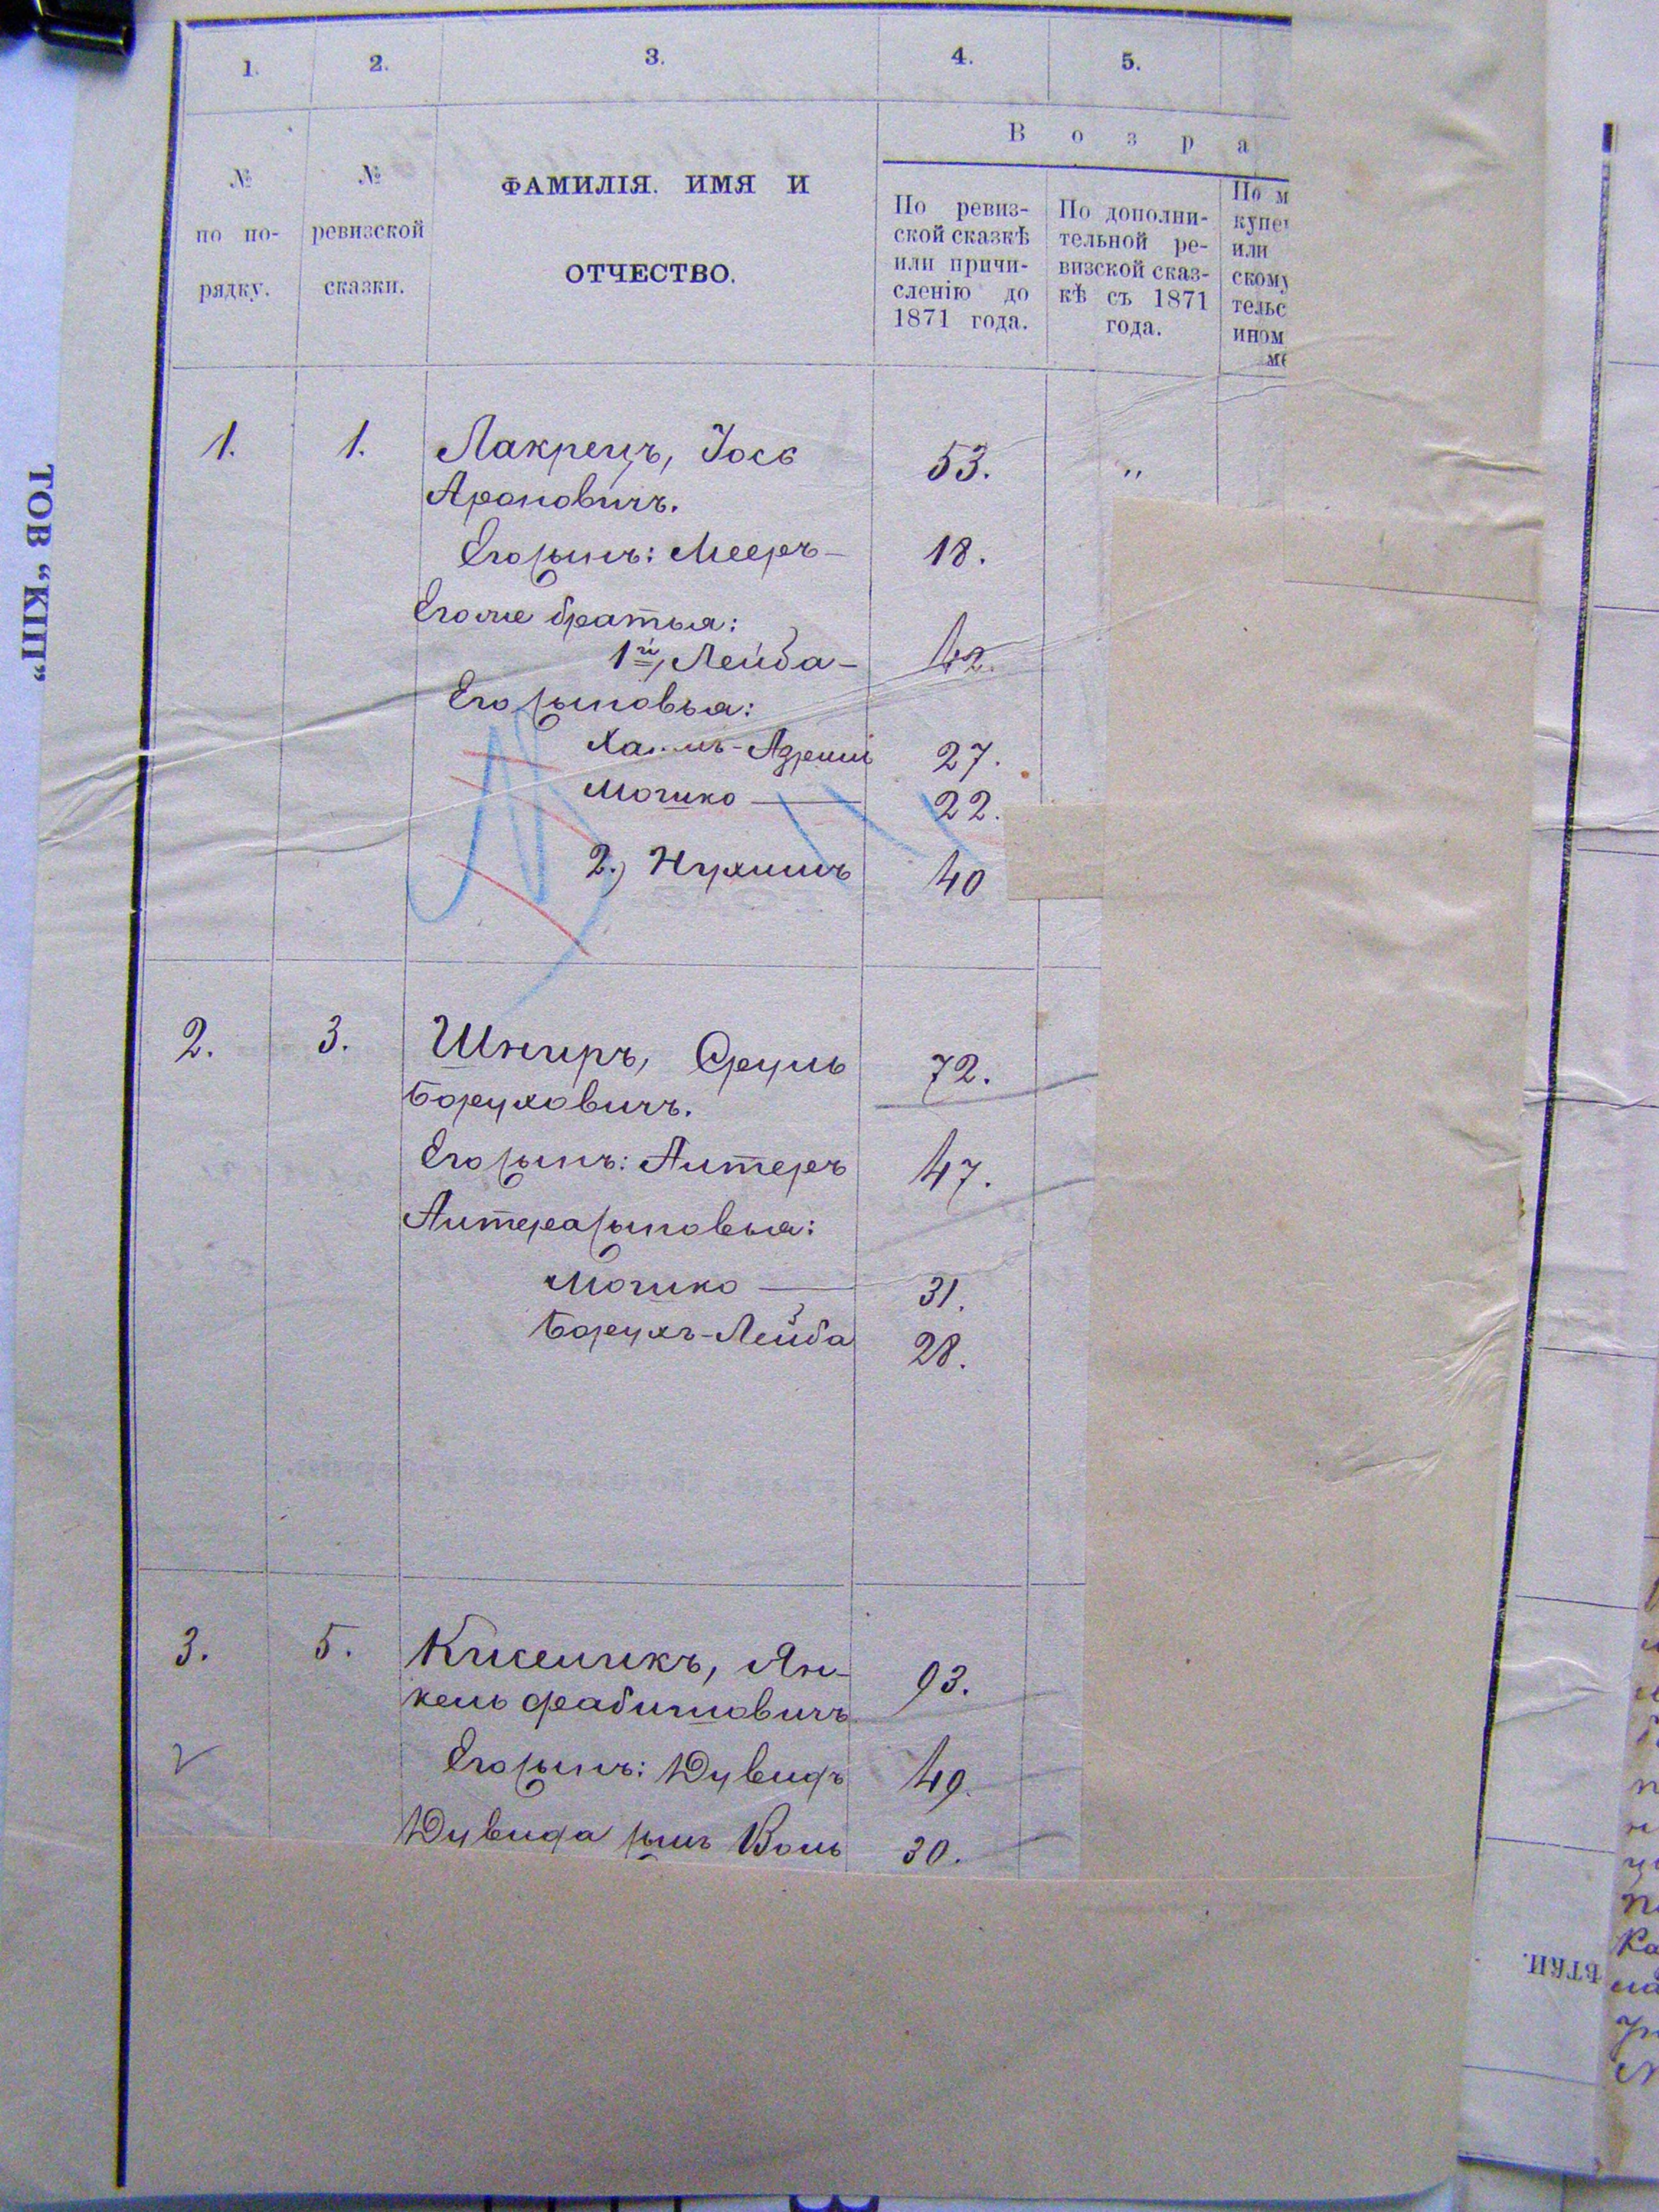 1. 2. 3. 4. 5.
В о з р а
№ по по-рядку.
№ ревизской сказки.
ФАМИЛІЯ. ИМЯ И
ОТЧЕСТВО.
По ревиз-
ской сказкѣ
или причи-
сленію до
1871 года.
По дополни-
тельной ре-
визской сказ-
кѣ съ 1871
года.
По м
купе
или
скому
тельс
ином
ме
1. 1. Лакрецъ, Іосъ 53. „
Ароновичъ.
Его сынъ: Мееръ — 18.
Его же братья:
1й, Лейба — 42.
Его сыновья:
Хаимъ-Азриль 27.
Мошко — 22.
2.) Нухимъ 40
2. 3. Шниръ, Сруль 72.
Боруховичъ.
Его сынъ: Алтеръ 47.
Алтера сыновья:
Мошко — 31.
Борухъ-Лейба 28.
3. 5. Киселикъ, Ян- 93.
кель Фабишовичъ
Его сынъ: Дувидъ 49.
Дувида сынъ Воль 30.
ТОВ “КПП“
ѢТКИ.